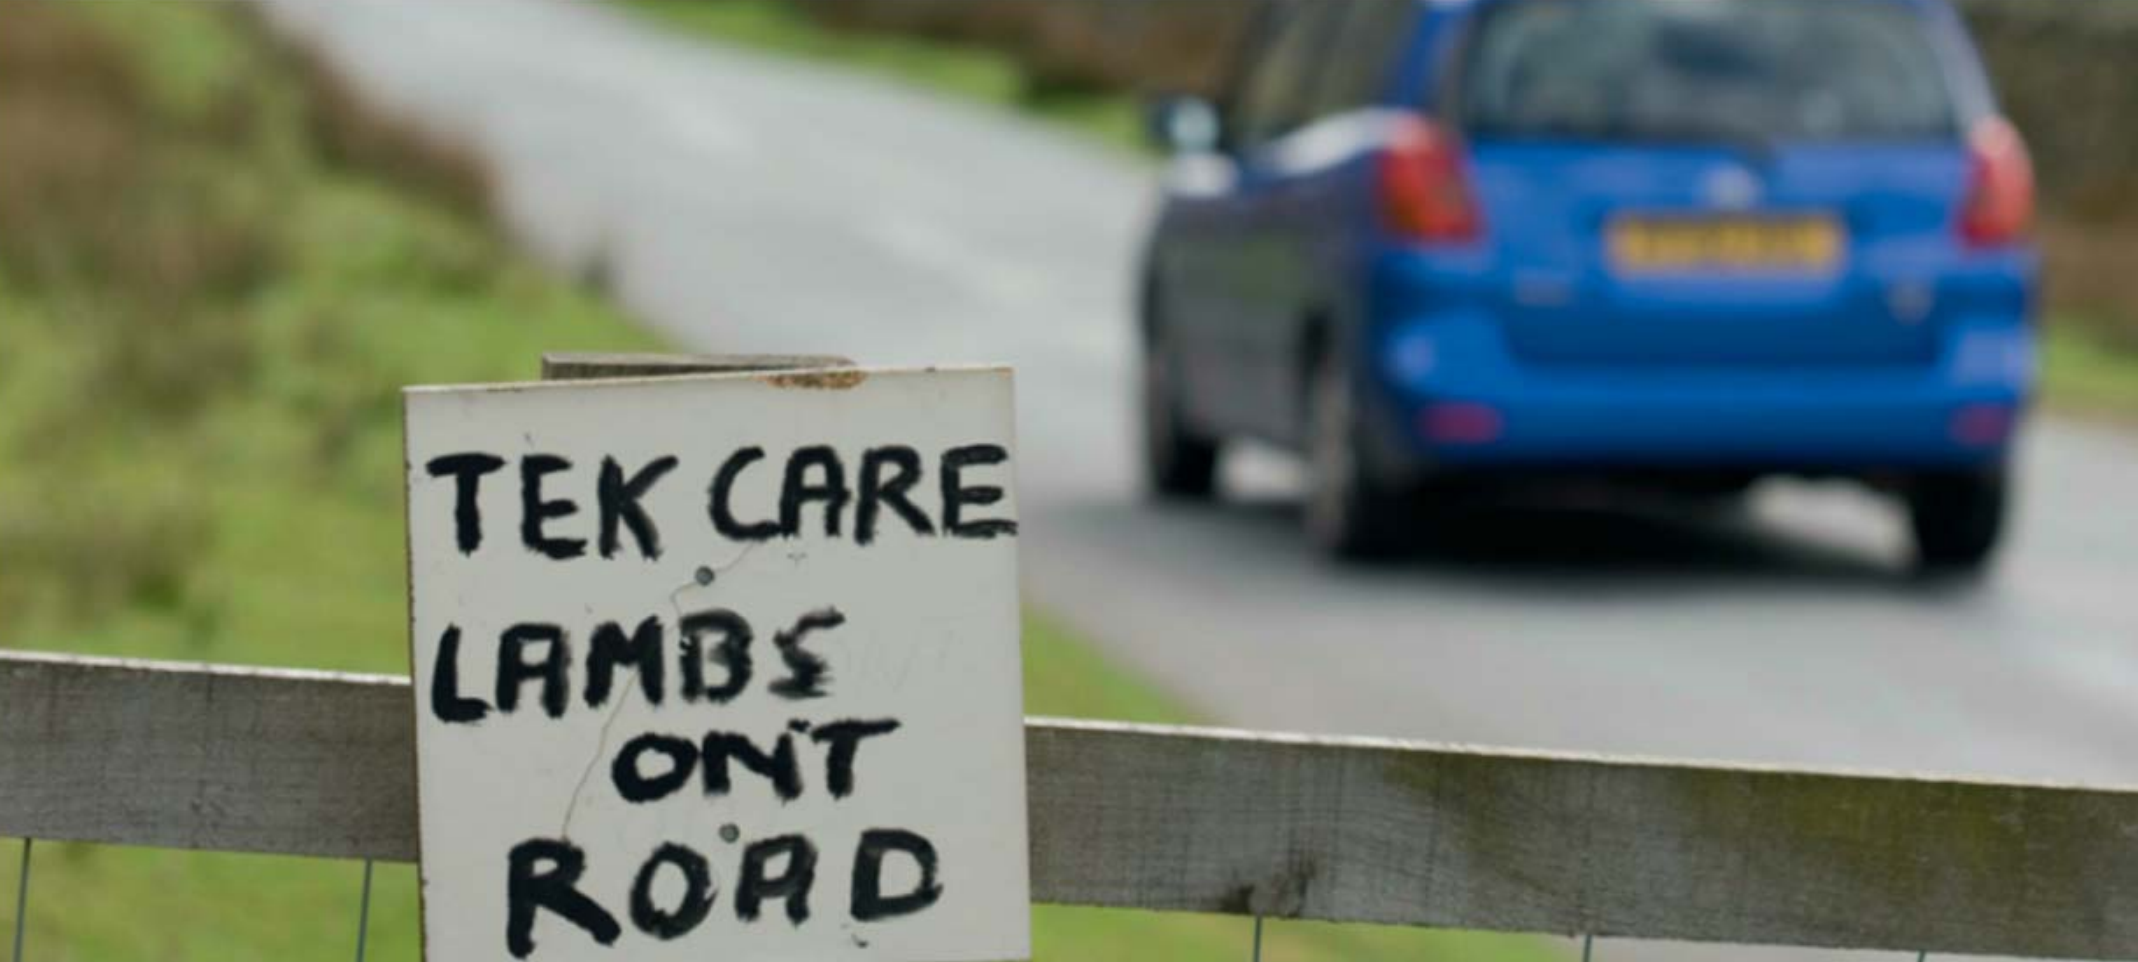 TEK CARE
LAMBS
ON'T
ROAD